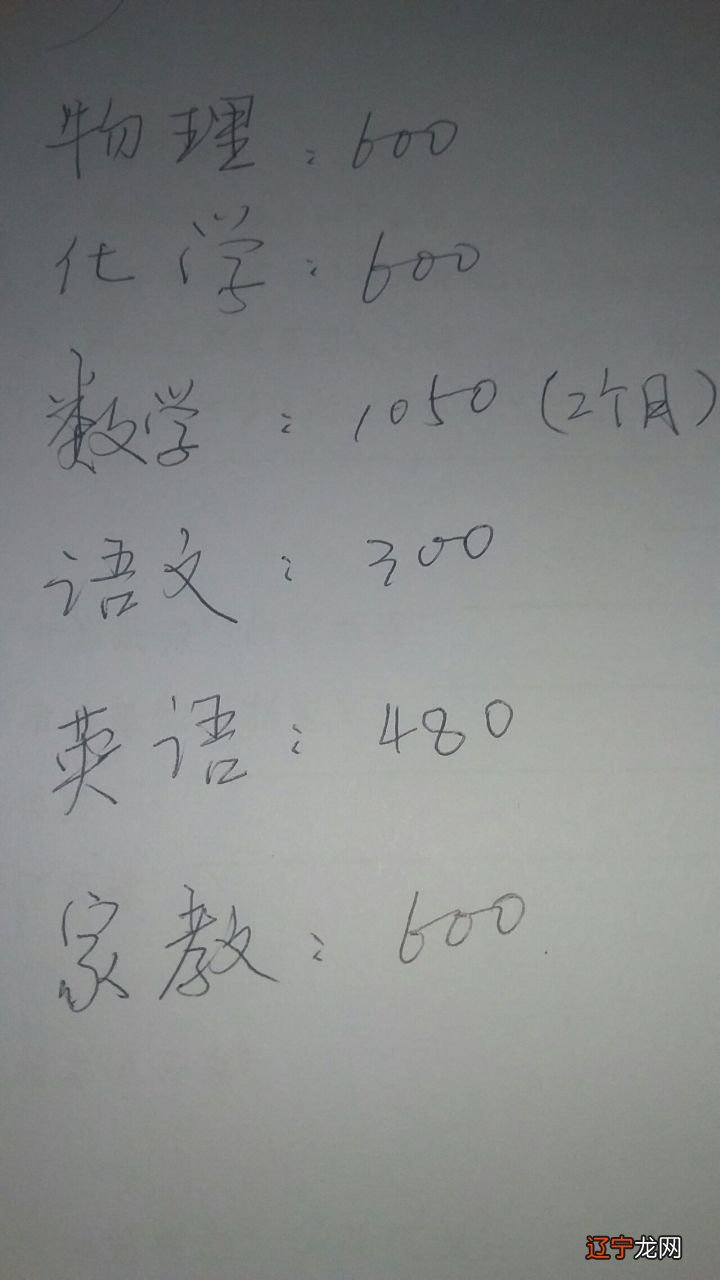 物理：600
化学：600
数学：1050（2个月）
语文：300
英语：480
家教：600
辽宁龙网